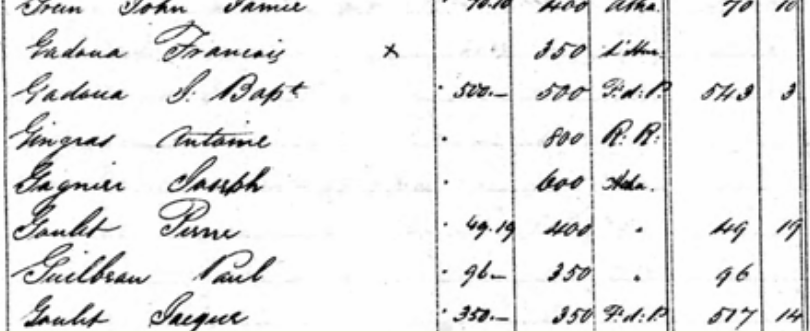 John Jamie 70.10 400 Atha. 70 10
Gadoua Francois x 350
Gadoua J. Bapt 500.— 500 F.d.P. 543 3
Gingras Antoine 800 R. R.
Gagnier Joseph 600 Atha.
Goulet Pierre 49.19 400 " 49 19
Guilbeau Paul 96— 350 " 96
Goulet Jacque 350.— 350 F.d.P. 517 14